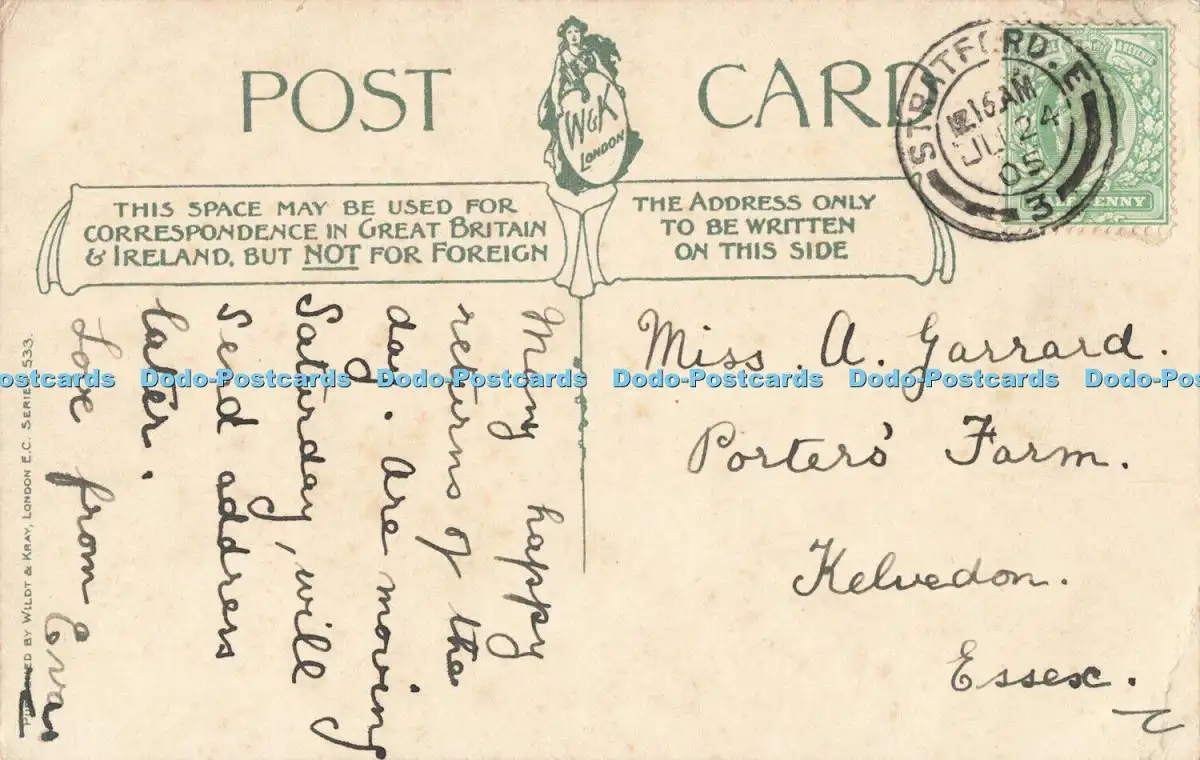 POST CARD
W&K
LONDON
THIS SPACE MAY BE USED FOR
CORRESPONDENCE IN GREAT BRITAIN
& IRELAND, BUT NOT FOR FOREIGN
THE ADDRESS ONLY
TO BE WRITTEN
ON THIS SIDE
STRATFORD. E
12.16 AM
24
05
3
Many happy
returns of the
day. Are moving
Saturday, will
send address
later.
Love from
Miss. A. Garrard.
Porters' Farm.
Kelvedon.
Essex.
BY WILDT & KRAY, LONDON E.C. SERIES 533.
Dodo-Postcards Dodo-Postcards Dodo-Postcards Dodo-Postcards Dodo-Postcards